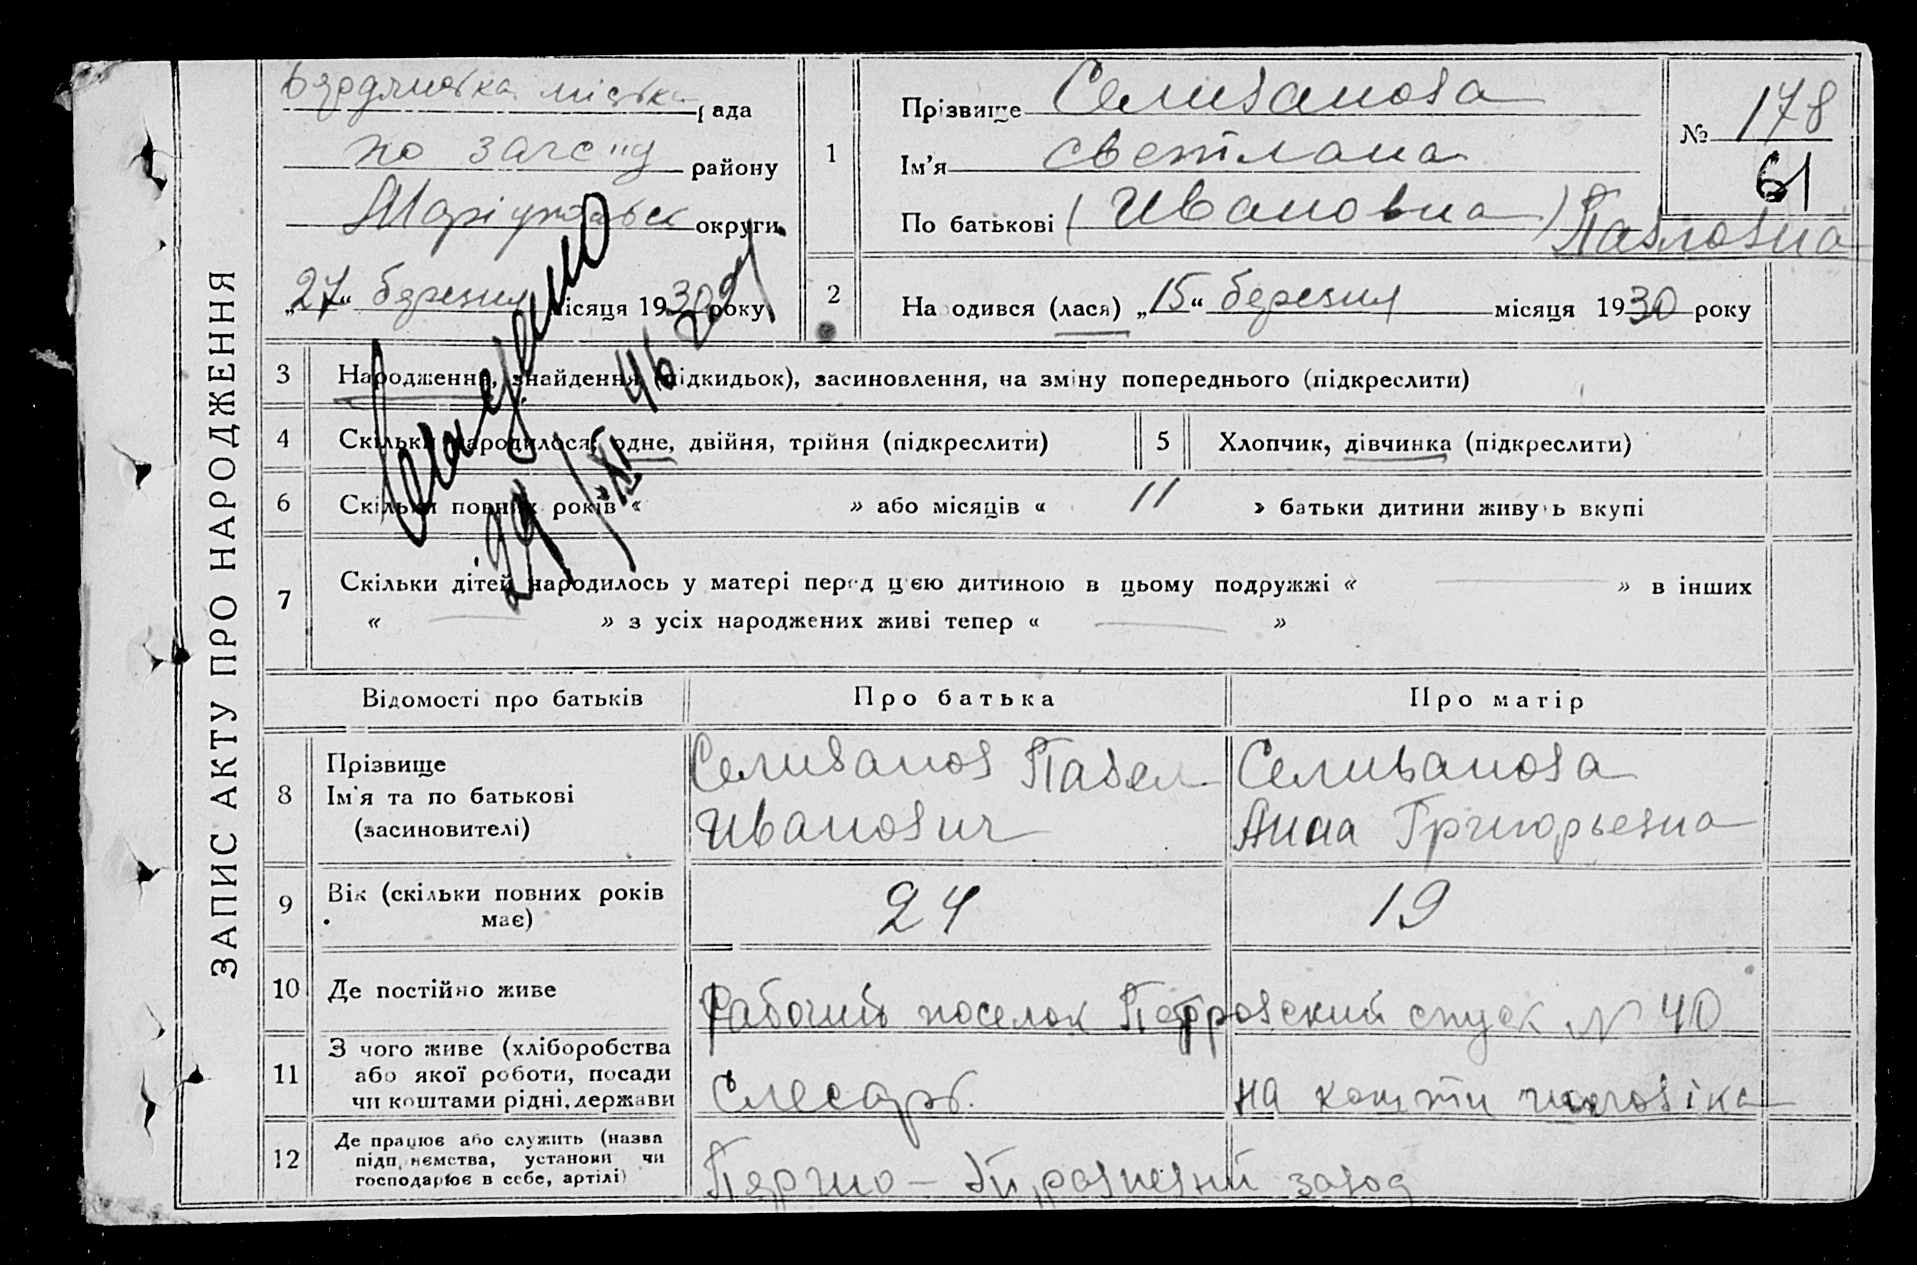 ЗАПИС АКТУ ПРО НАРОДЖЕННЯ
Бердянська міська рада
по загс'у району
Маріупольськ округи
„27“ березня місяця 1930 року
1
Прізвище Селиванова
Ім'я Светлана
По батькові (Ивановна) Павловна
№ 178
61
2
Народився (лася) „15“ березня місяця 1930 року
3 Народження, знайдення (підкидьок), засиновлення, на зміну попереднього (підкреслити)
4 Скільки народилося: одне, двійня, трійня (підкреслити)
5 Хлопчик, дівчинка (підкреслити)
6 Скільки повних років « » або місяців « 11 » батьки дитини живуть вкупі
29/XI 46
7 Скільки дітей народилось у матері перед цією дитиною в цьому подружжі « — » в інших
« — » з усіх народжених живі тепер « — »
Відомості про батьків Про батька Про матір
8 Прізвище
Ім'я та по батькові
(засиновителі)
Селиванов Павел
Иванович
Селиванова
Анна Григорьевна
9 Вік (скільки повних років
має)
24 19
10 Де постійно живе Рабочий поселок Петровский спуск № 40
11 З чого живе (хліборобства
або якої роботи, посади
чи коштами рідні, держави
Слесарь. на кошти чоловіка
12 Де працює або служить (назва
підприємства, установи чи
господарює в себе, артілі)
завод